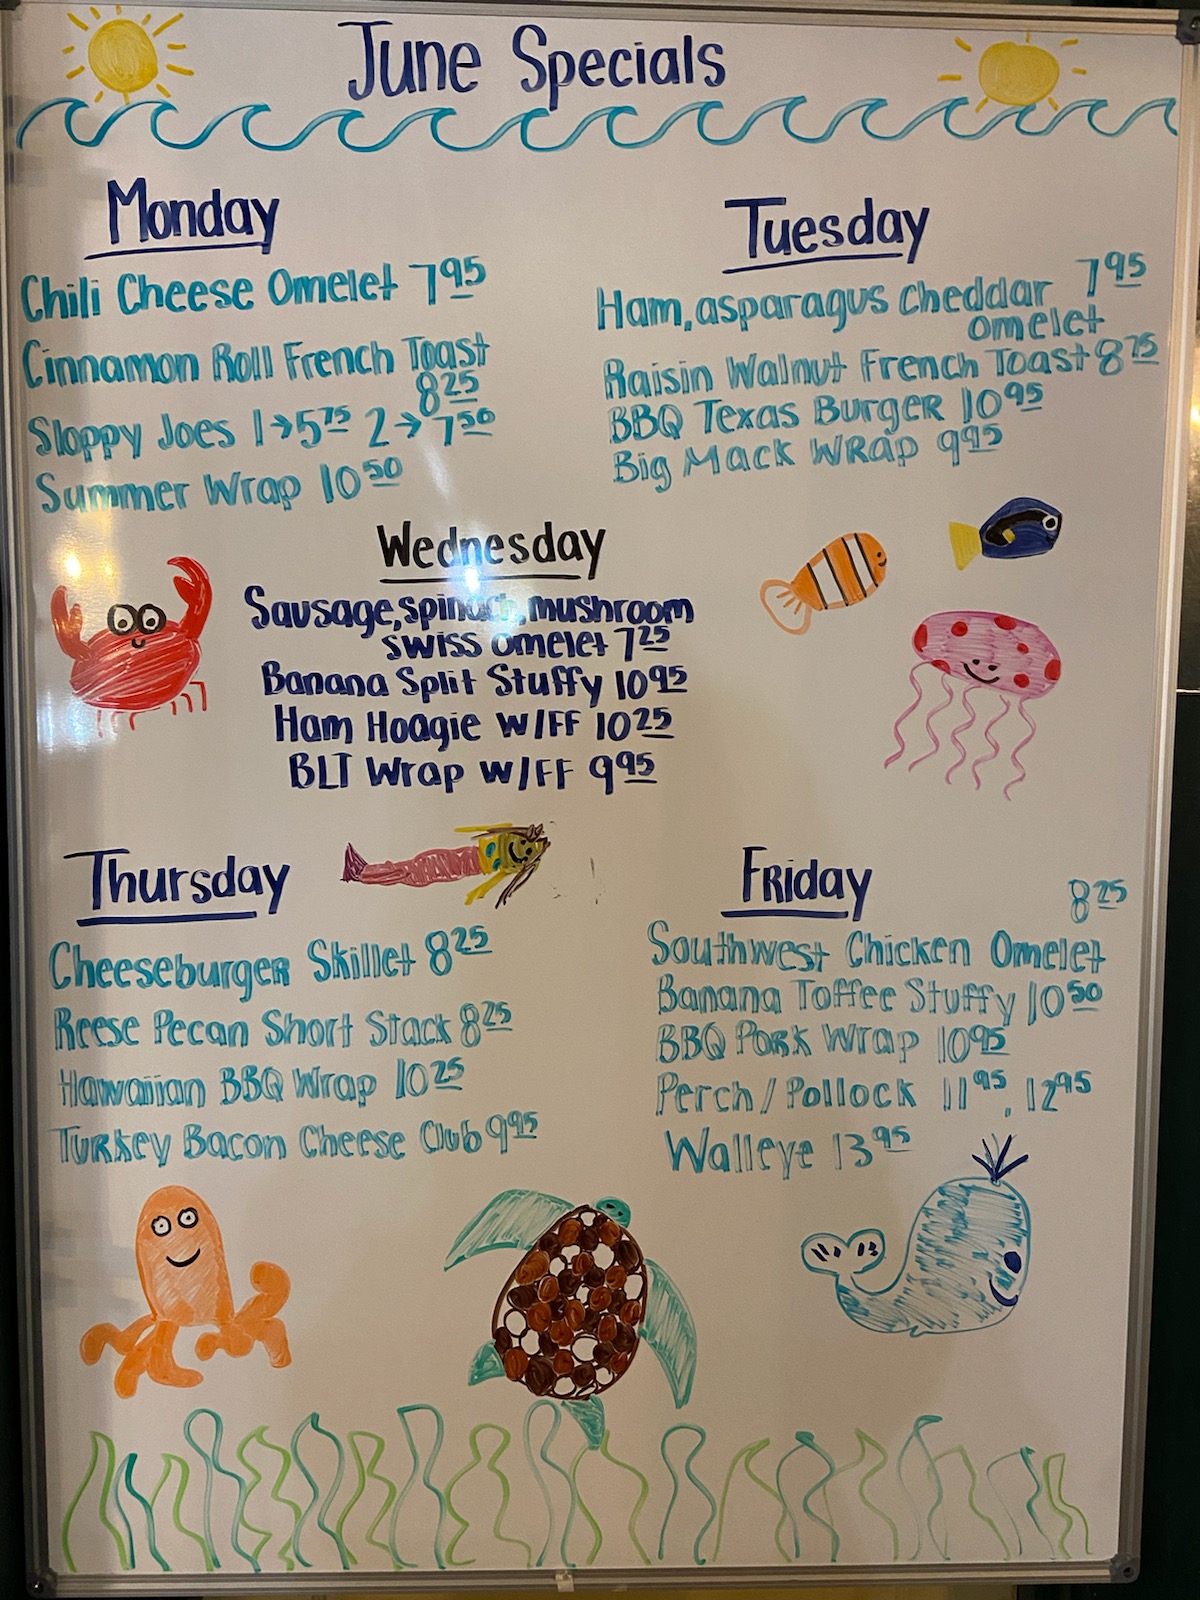 June Specials
Monday
Chili Cheese Omelet 7 95
Cinnamon Roll French Toast
8 25
Sloppy Joes 1→5 75 2→7 50
Summer Wrap 10 50
Tuesday
Ham, asparagus Cheddar 7 95
omelet
Raisin Walnut French Toast 8 75
BBQ Texas Burger 10 95
Big Mack Wrap 9 95
Wednesday
Sausage, spinach, mushroom
swiss omelet 7 25
Banana Split Stuffy 10 95
Ham Hoagie W/FF 10 25
BLT Wrap W/FF 9 95
Thursday
Cheeseburger Skillet 8 25
Reese Pecan Short Stack 8 25
Hawaiian BBQ Wrap 10 25
Turkey Bacon Cheese Club 9 95
Friday
8 25
Southwest Chicken Omelet
Banana Toffee Stuffy 10 50
BBQ Pork Wrap 10 95
Perch / Pollock 11 95, 12 95
Walleye 13 95